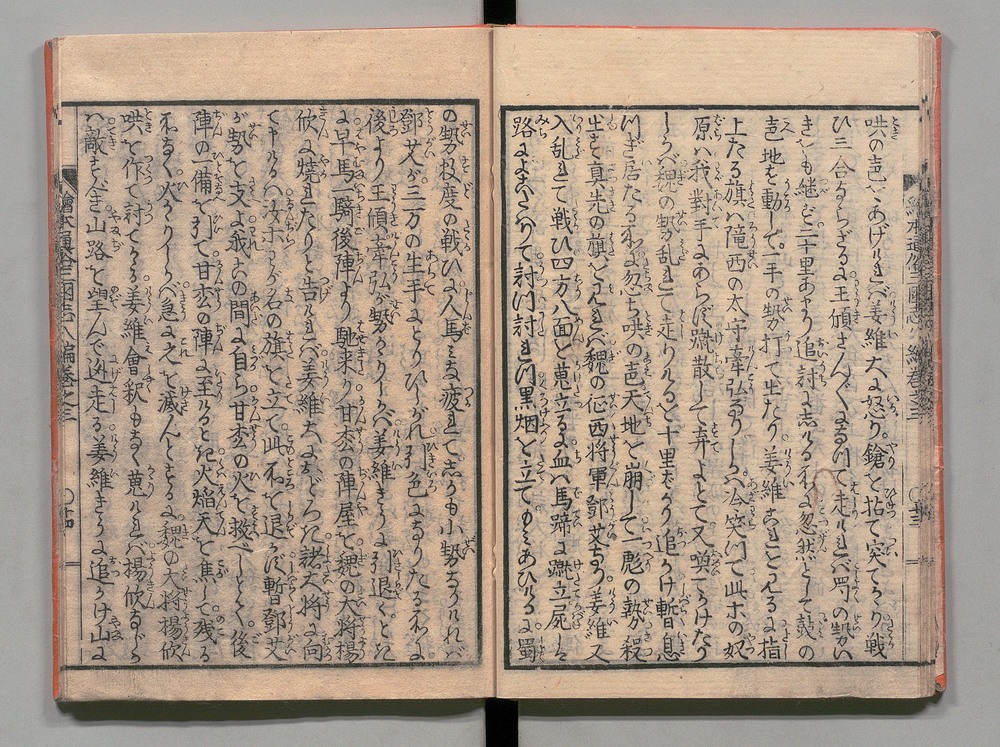 哄の声をあげければ姜維大に怒り鎗を拈て突てかゝり戦
ひ三合ならざるに王傾さん〴〵になつて走れば蜀の勢い
きをも継ず三十里あまり追討にしける処に忽然として鼓の
声地を動して一手の勢打て出たり姜維これをみるに指
上たる旗ハ隴西の太守牽弘なりしかバ冷笑つて此ホの奴
原ハ我對手にあらず蹴散して弃よとて又喚てかけたり
しかバ魏の勢乱て走りけるを十里ばかり追かけ暫息
つぎ居たる処に忽ち哄の声天地を崩して一彪の勢殺
出を真先の旗をみれバ魏の征西将軍鄧艾なり姜維又
入乱れて戦ひ四方八面を蒐立るに血ハ馬蹄に蹴立屍ハ
路によこたハつて討つ討れつ黒烟を立てもみあひける蜀
の勢投度の戦ひに人馬みな疲れてしかも小勢なりければ
鄧艾が三万の生手にとりひしがれ引色になりたる処に
後より王傾牽弘が勢かゝりしかバ姜維きうに引退くとき
に早馬一騎後陣より馳来り甘松の陣屋を魏の大将楊
欣に焼れたりと告ければ姜維大におどろき諸大将に向
て申けるハ汝ホわが名の旗を立て此処を退かず暫鄧艾
が勢を支よ我この間に自ら甘松の火を救べしとて後
陣の一備を引て甘松の陣に至るとき火焔天を焦して残る
処なく火かゝりしかバ急に之を滅んとするに魏の大将楊欣
哄を作て討てかゝる姜維會釈もなく蒐ければ楊欣なじか
ハ敵すべき山路を望んで迯走る姜維きうに追かけ山に